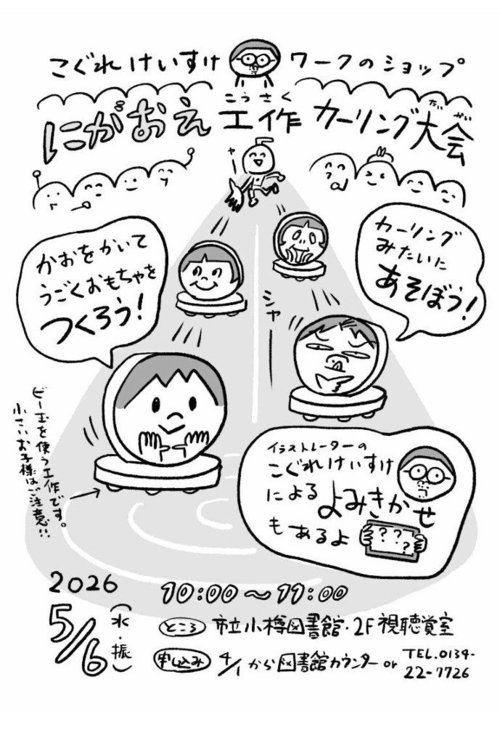 こぐれけいすけ ワークのショップ
こうさく たいかい
にがおえ工作カーリング大会
かおをかいて
うごくおもちゃを
つくろう!
カーリング
みたいに
あそぼう!
シャ
ビー玉を使う工作です。
小さいお子様はご注意!!
イラストレーターの
こぐれけいすけ
による よみきかせ
もあるよ
???
2026
5/6(水・振)
10:00~11:00
ところ 市立小樽図書館・2F視聴覚室
申し込み 4/1から図書館カウンター or TEL.0134-
22-7726